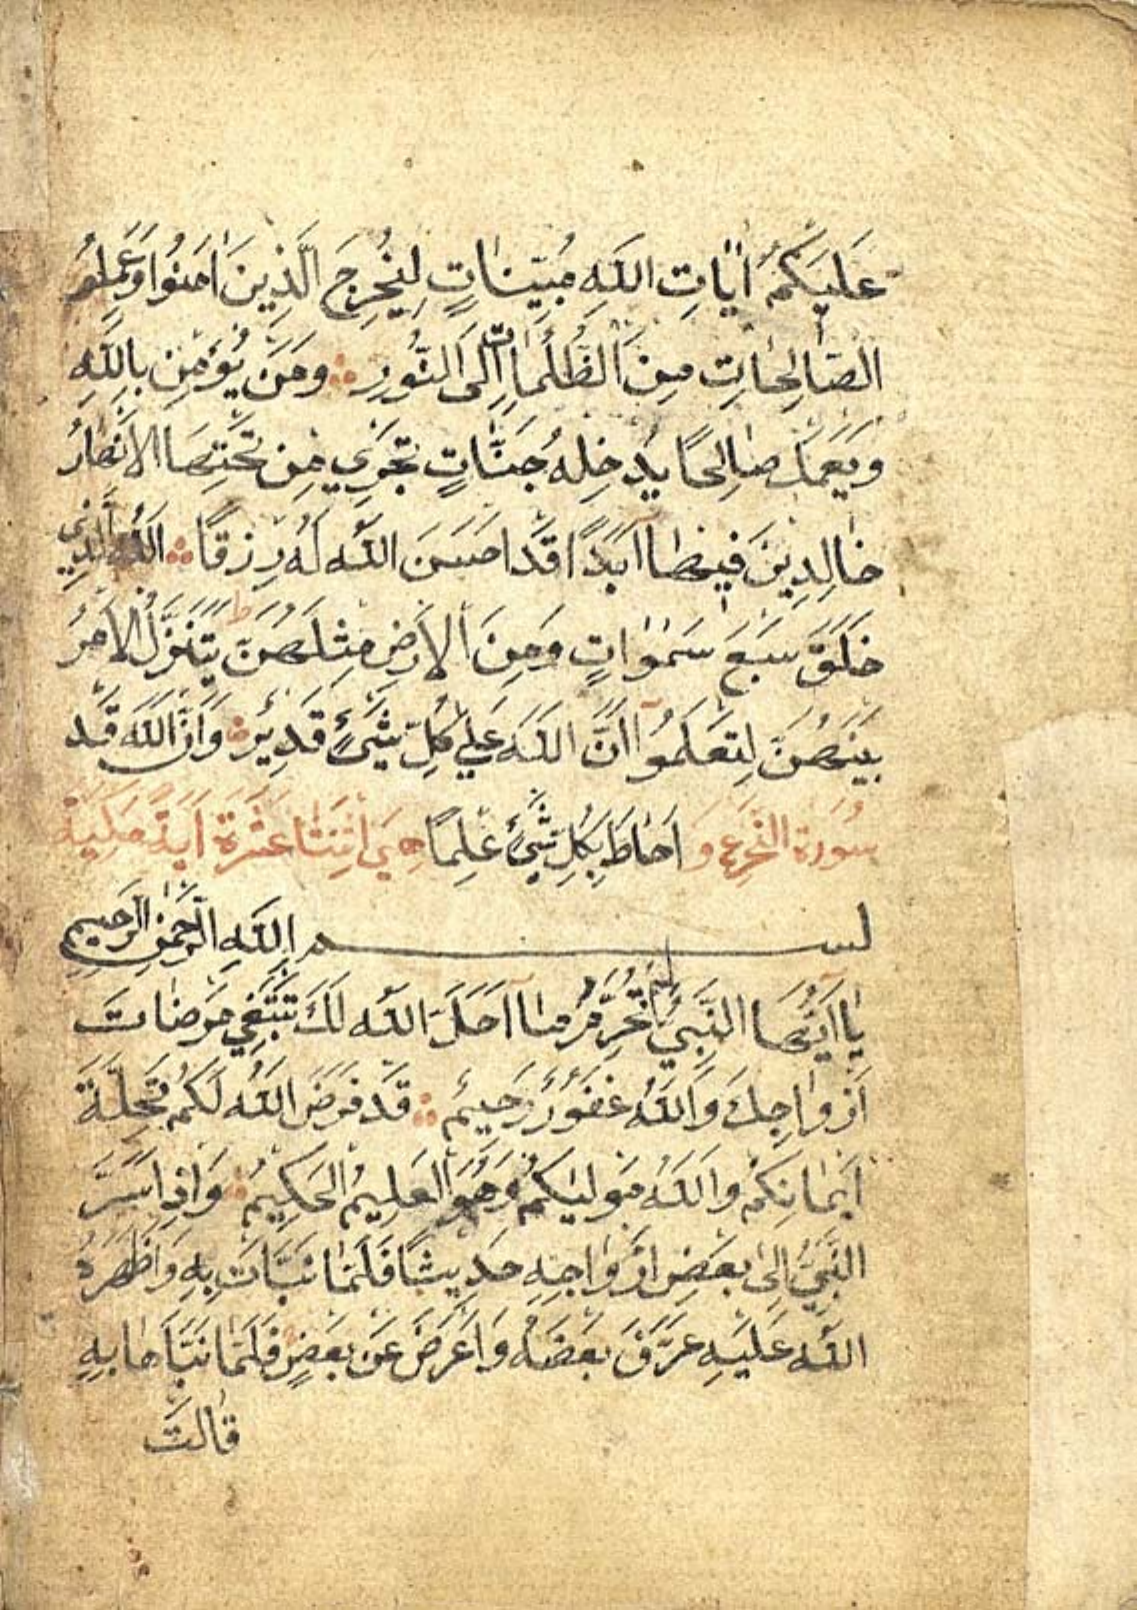 عَلَيْكُمْ اٰيَاتِ اللّٰهِ مُبَيِّنَاتٍ لِيُخْرِجَ الَّذِينَ اٰمَنُوا وَعَمِلُوا
الصَّالِحَاتِ مِنَ الظُّلُمَاتِ اِلَى النُّورِ وَمَنْ يُؤْمِنْ بِاللّٰهِ
وَيَعْمَلْ صَالِحًا يُدْخِلْهُ جَنَّاتٍ تَجْرِي مِنْ تَحْتِهَا الْاَنْهَارُ
خَالِدِينَ فِيهَا اَبَدًا قَدْ اَحْسَنَ اللّٰهُ لَهُ رِزْقًا اَللّٰهُ الَّذِي
خَلَقَ سَبْعَ سَمٰوَاتٍ وَمِنَ الْاَرْضِ مِثْلَهُنَّ ط يَتَنَزَّلُ الْاَمْرُ
بَيْنَهُنَّ لِتَعْلَمُوا اَنَّ اللّٰهَ عَلٰى كُلِّ شَيْءٍ قَدِيرٌ وَاَنَّ اللّٰهَ قَدْ
سُورَة التحرم و اَحَاطَ بِكُلِّ شَيْءٍ عِلْمًا هِيَ اثْنَتَا عَشْرَةَ اٰيَة
بسم اللّٰهِ الرَّحْمٰنِ الرَّحِيمِ
يَا اَيُّهَا النَّبِيُّ لِمَ تُحَرِّمُ مَا اَحَلَّ اللّٰهُ لَكَ تَبْتَغِي مَرْضَاتَ
اَزْوَاجِكَ وَاللّٰهُ غَفُورٌ رَحِيمٌ قَدْ فَرَضَ اللّٰهُ لَكُمْ تَحِلَّةَ
اَيْمَانِكُمْ وَاللّٰهُ مَوْلٰيكُمْ وَهُوَ الْعَلِيمُ الْحَكِيمُ وَاِذْ اَسَرَّ
النَّبِيُّ اِلٰى بَعْضِ اَزْوَاجِهِ حَدِيثًا فَلَمَّا نَبَّاَتْ بِهِ وَاَظْهَرَهُ
اللّٰهُ عَلَيْهِ عَرَّفَ بَعْضَهُ وَاَعْرَضَ عَنْ بَعْضٍ فَلَمَّا نَبَّاَهَا بِهِ
قَالَتْ